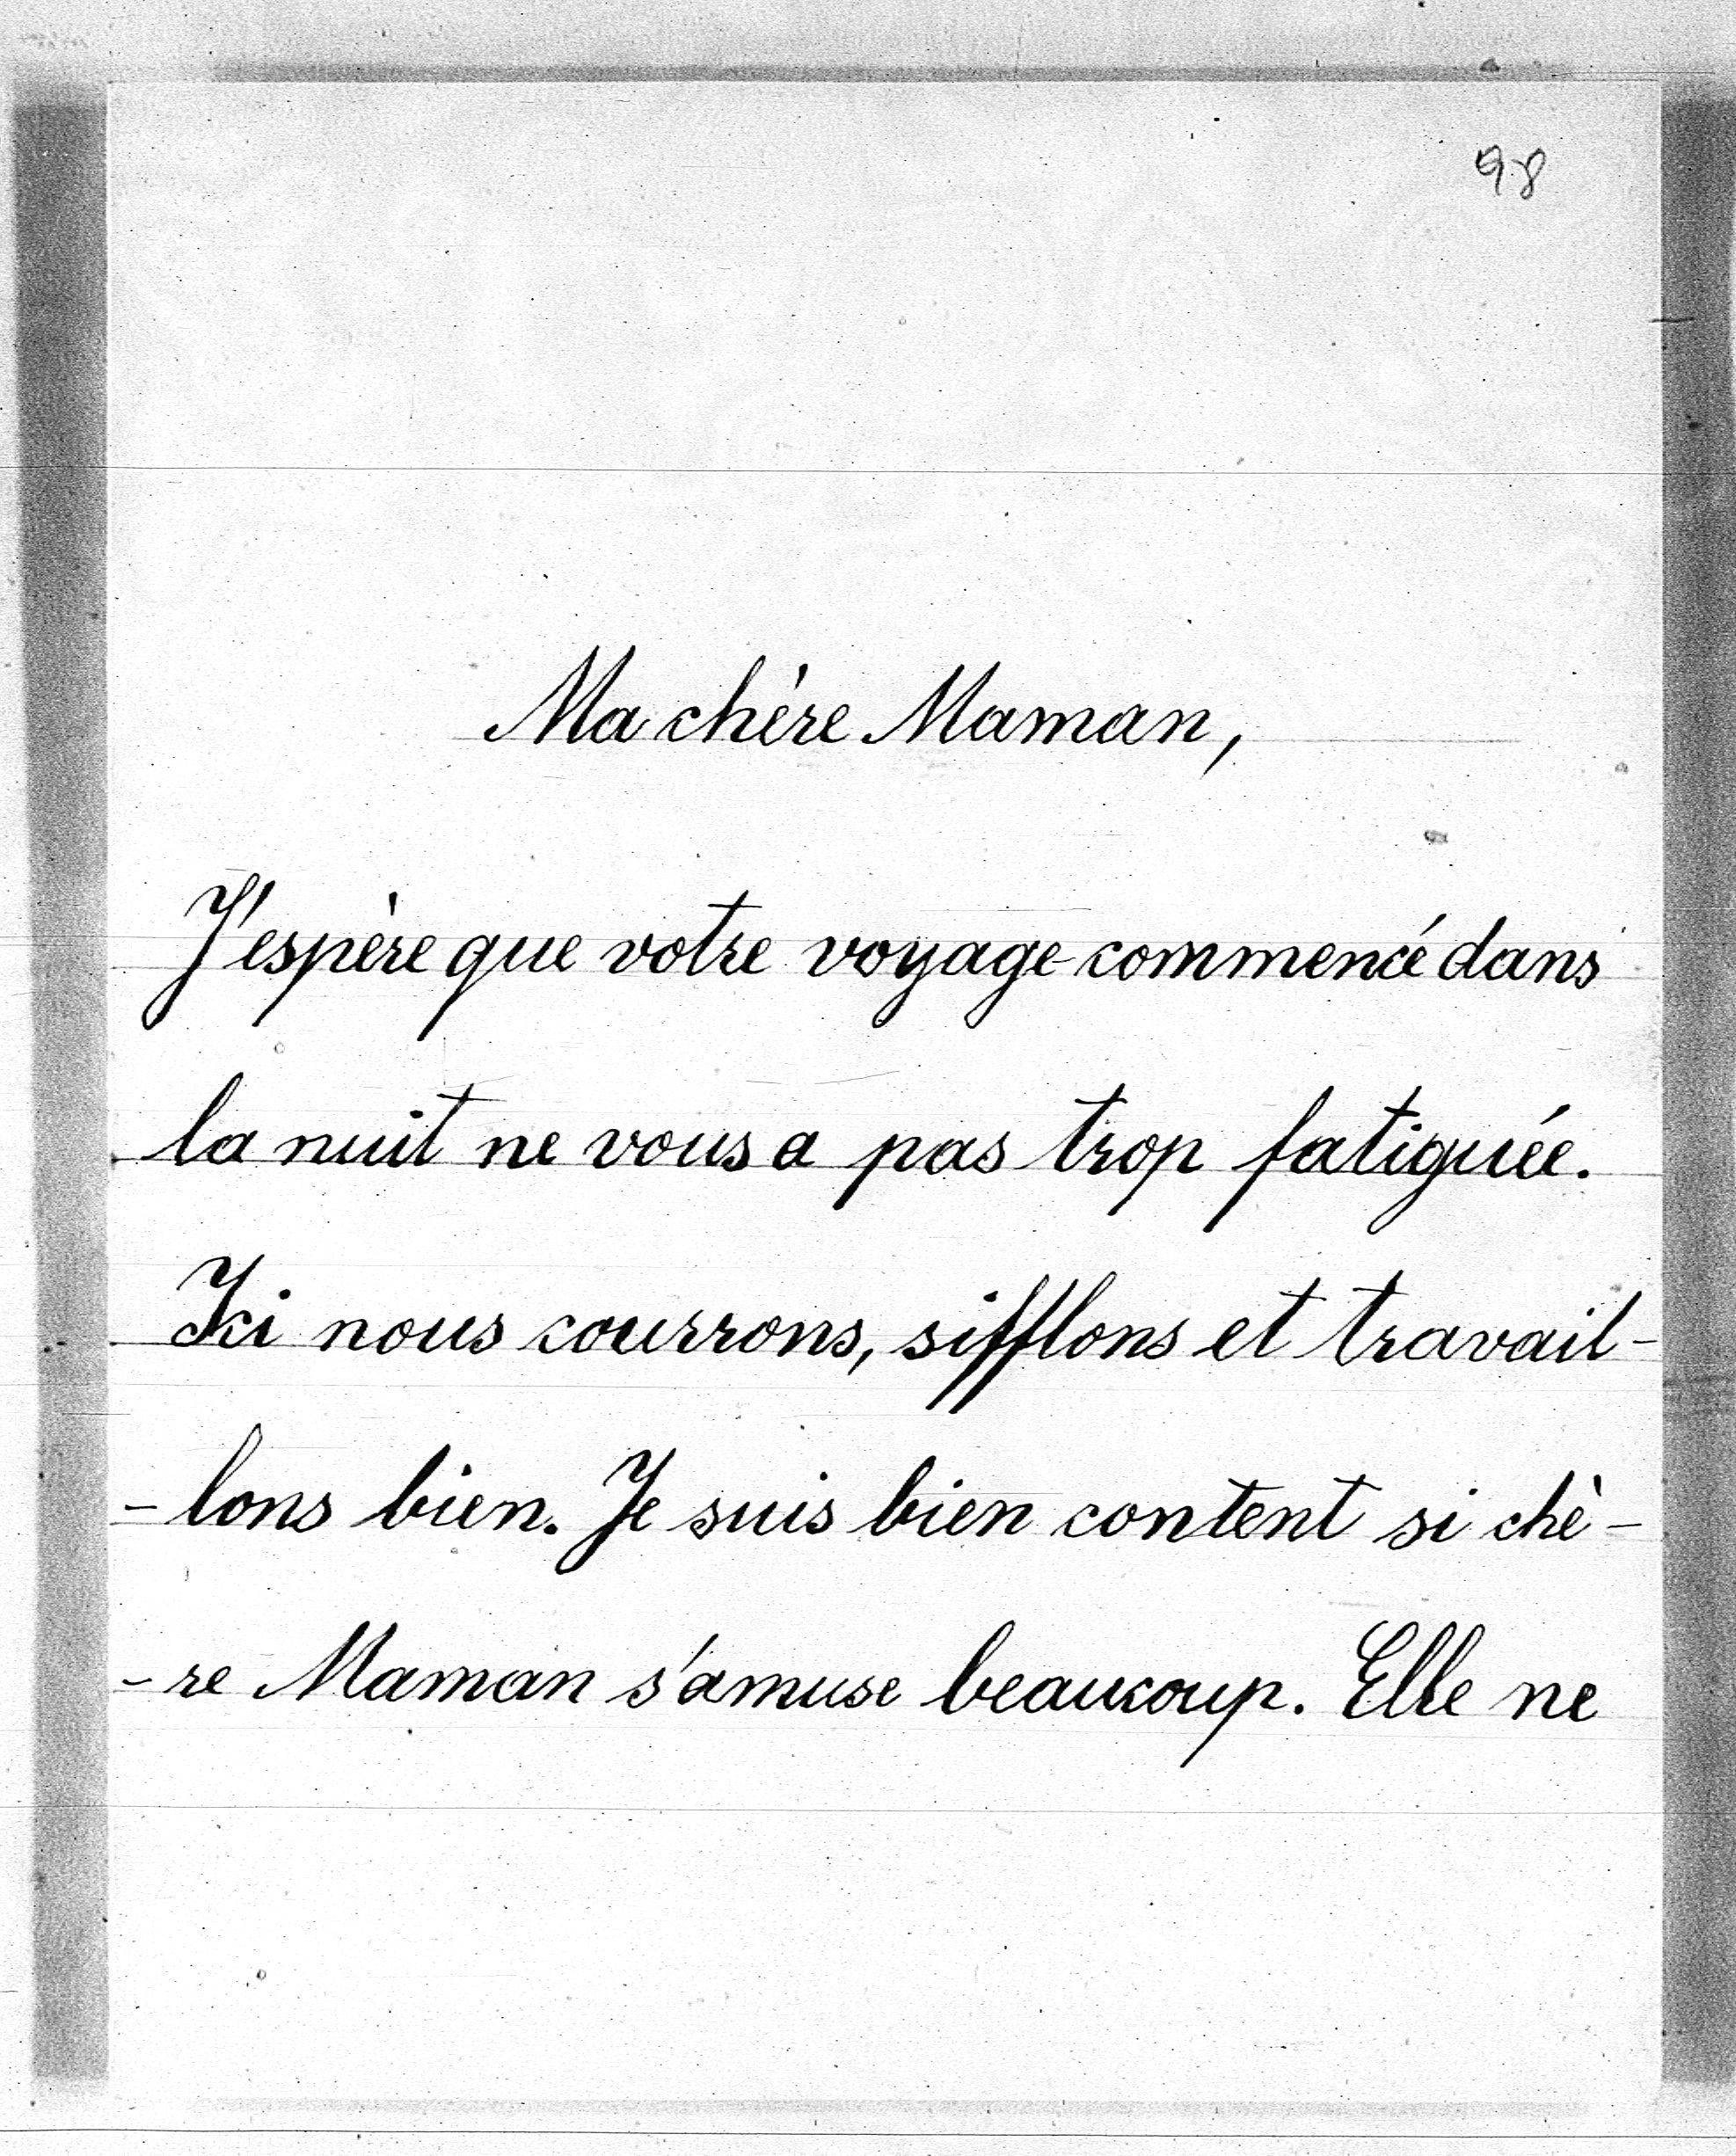 98
Ma chère Maman,
J'espère que votre voyage commencé dans
la nuit ne vous a pas trop fatiguée.
Ici nous courrons, sifflons et travail-
-lons bien. Je suis bien content si chè-
-re Maman s'amuse beaucoup. Elle ne